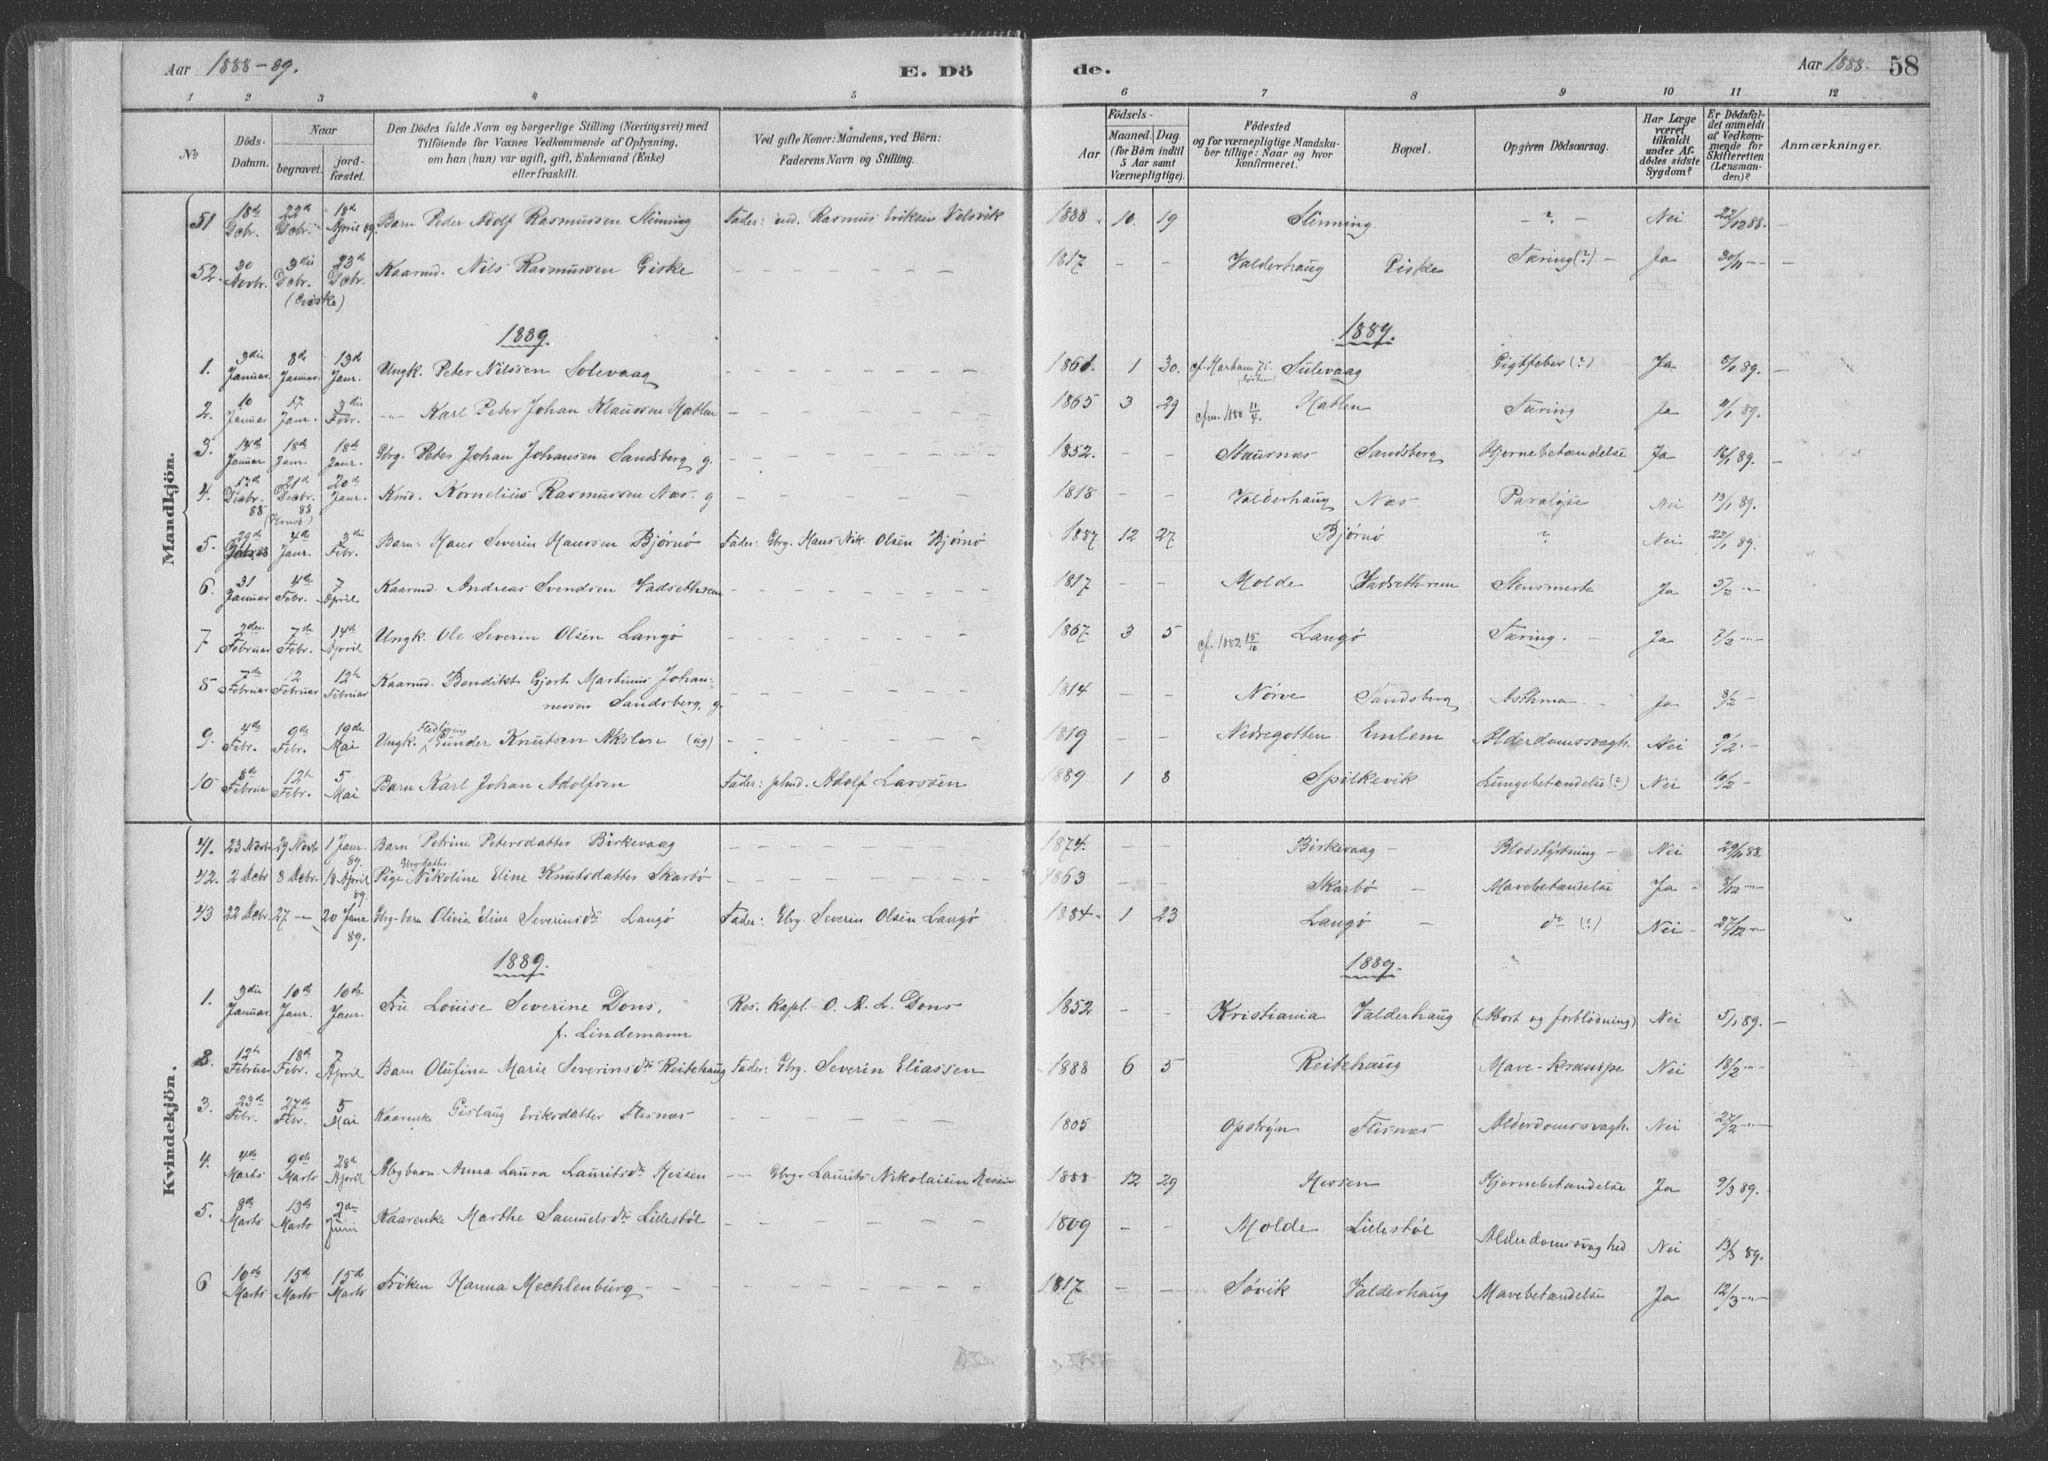 Aar 1888-89.
E. Dö
de.
Aar 1888.
58
1 2 3 4 5 6 7 8 9 10 11 12
No
Döds-Datum.
Naar
begravet.
jordfæstet.
Den Dödes fulde Navn og borgerlige Stilling (Næringsvei) med
Tilföiende for Voxnes Vedkommende af Oplysning,
om han (hun) var ugift, gift, Enkemand (Enke)
eller fraskilt.
Ved gifte Koner: Mandens, ved Börn:
Faderens Navn og Stilling.
Födsels-
Aar
Maaned. Dag.
(for Börn indtil
5 Aar samt
Værnepligtige).
Födested
og for værnepligtige Mandskaber tillige: Naar og hvor
Konfirmeret.
Bopæl.
Opgiven Dödsaarsag.
Har Læge
været
tilkaldt
under Afdödes sidste
Sygdom?
Er Dödsfaldet anmeldt
af Vedkommende for
Skifteretten
(Lensmanden)?
Anmærkninger.
Mandkjön.
51 18de Dcbr. 22de Dcbr. 18de April 89. Barn Peder Adolf Rasmussen Slinning Fader: ind. Rasmus Eriksen Velsvik 1888 10. 19 Slinning - ? - Nei 22/12 88. -
52. 30 Novbr. 3die Dcbr. (Giske) 23de Dcbr. Kaarmd. Nils Rasmussen Giske - 1817 - - Valderhaug Giske Tæring (?) - Ja 30/11 - -
1889. 1889.
1. 3die Januar 8de Januar. 13de Janr. Ungk. Peter Nilssen Solevaag - 1 30. Sulevaag Gigtfeber (?) Ja 8/1 89. -
2. 10 Januar 17. Janr. 3die Febr. -"- Karl Peter Johan Klaussen Hatlen - 1865 3 29 Hatlen Tæring Ja 11/1 89.
3. Januar 18de Janr. 18de Janr. Gbrg. Peter Johan Johansen Sandsberg g. - 1852. - - Staursnes Sandsberg Hjernebetændelse Ja 16/1 89. -
4. 17de Decbr. 88 21de Decbr. 88 20de Janr. Kornelius Rasmussen Næs. g - 1818 - - Valderhaug Næs Paralyse Nei 19/1 89.
5. 29de 4de Janr. 3die Febr. Barn: Hans Severin Hanssen Bjørnø Fader: Gbrg. Hans Nik. Olsen Bjørnø 1887 12 27 Bjørnø ? Nei 22/1 89.
6. 31 Januar 4de Febr. 7 April Kaarmd. Andreas Svendsen Vadsethrem - 1817 - - Molde Vadsethrem Stensmerte Ja 5/2 -"-
7 2den Februar 7de Febr. 14de April Ungk. Ole Severin Olsen Langø - 1867 3 5 cf. 1882 15/10 Langø Tæring. - Ja 7/2 -"-
8 7de Februar 12 Februar 12te Februar Kaarmd. Bendikt Gjort Martinus Johannessen Sandsberg, g. - 1814 - - Nørve Sandsberg Asthma - Ja 8/2 -
9. 4de Febr. 9de Febr. 19de Mai Ungk. Gunder Knutsen Akslen (ug) - 1819 - - Nedregotten Emlem Alderdomssvagh. Nei 9/2 -
10 8de Februar 12te Febr. 5 Mai Barn Karl Johan Adolfsen Fader: Adolf Larssen 1889 1 8 Spilkevik Lungebetændelse (?) Nei 16/2 -
Kvindekjön.
41. 23 Novbr 29 Novbr 1 Janr. 89. Barn Petrine Petersdatter Birkevaag - 1874. - - Birkevaag - Blodstyrtning - Nei 29/11 88.
42. 2 Dcbr 8 Dcbr. 18 April 89. Pige Nikoline Eline Knutsdatter Skarbø - 1863 - - Skarbø - Mavebetændelse Ja - 8/12 -"-
43 22 Dcbr. 27 -"- 20 Janr 89. Gbrg-barn Olivia Eline Severinsdr Langø Fader: Gbrg. Severin Olsen Langø 1884 1 23 Langø - do (?) Nei - 27/12 -"-
1889. 1889.
1. 3die Januar 10de Janr. 10de Janr. Fru Louise Severine Dons, f. Lindemann Res. Kapl. O. R. A. Dons 1852 - - Kristiania Valderhaug (Abort og forblødning) Nei 5/1 89. -
2. 12te Februar 18de Febr. 7 April Barn Olufine Marie Severinsdr Reitehaug Fader: Gbrg. Severin Eliassen 1888 6 5 Reitehaug Mave-Krampe Nei 18/2 -"-
3. 23de Febr. 27de Febr. 5 Mai Kaarenke Gislaug Eriksdatter Flisnes - 1805 - - Opstryn Flisnes Alderdomssvagh. Nei 27/2 -"-
4. 4de Marts 9de Marts 28de April Gbrgbarn. Anna Laura Lauritsdr Hessen -"- Gbrg. Laurits Nikolaisen Hessen 1888 12 29 Hessen Hjernebetændelse Ja 9/3 89.
5. 8de Marts 13de Marts 2den Juni Kaarenke Marthe Samuelsdr Lillestøl - 1809 - - Molde Lillestøl Alderdomssvaghed Nei 13/3 89.
6 10de Marts 15de Marts 15de Marts Frøken Hanna Mechlenburg - 1817 - - Søvik Valderhaug Mavebetændelse Ja 12/3 -"-